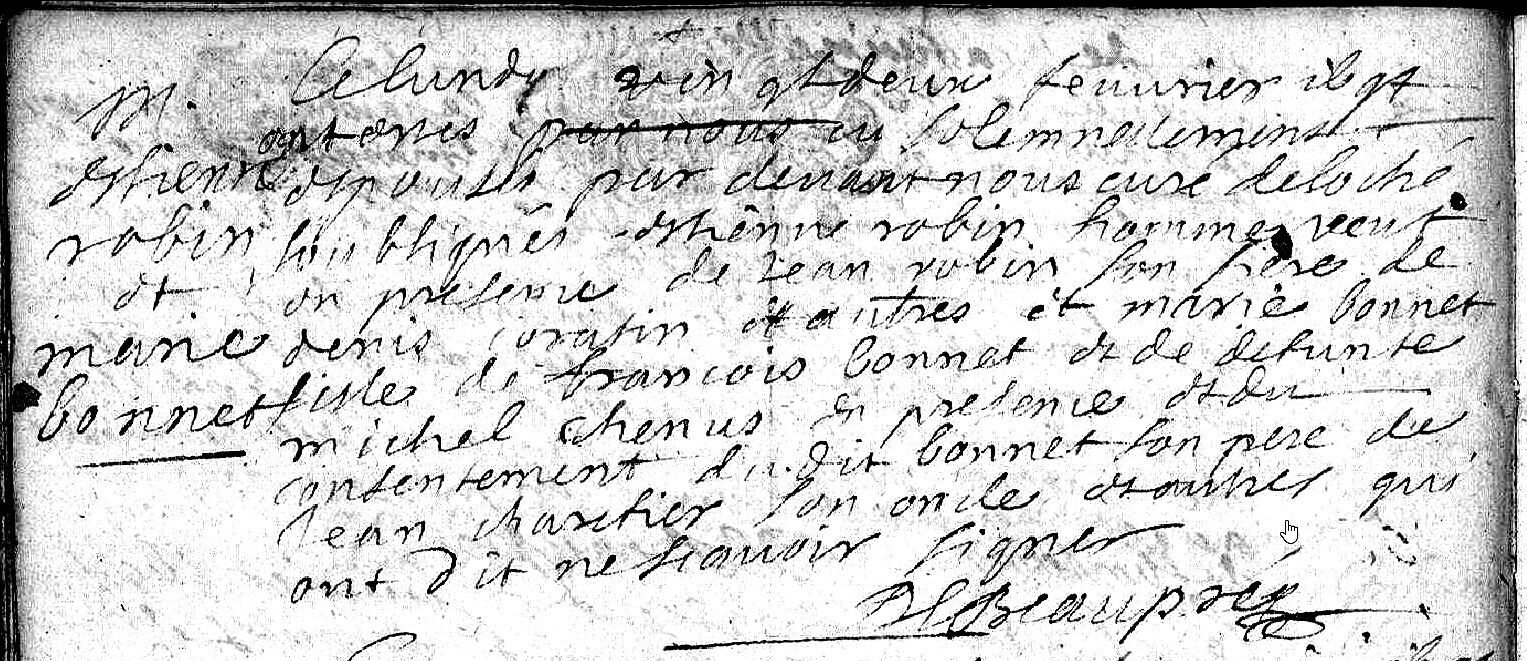 M.
estienne
robin
et
marie
bonnet
Ce lundy vingt deux feuurier
ont estes par nous en solemnellement
espousés par deuant nous curé de loché
soubsignés estienne robin homme veuf
en presence de Jean robin son frere de
denis et autres et marie bonnet
fille de francois bonnet et de defunte
michel chenus en presence et du
consentement du dit bonnet son pere de
Jean chartier son oncle et autres qui
ont dit ne scauoir signer
Beaupré